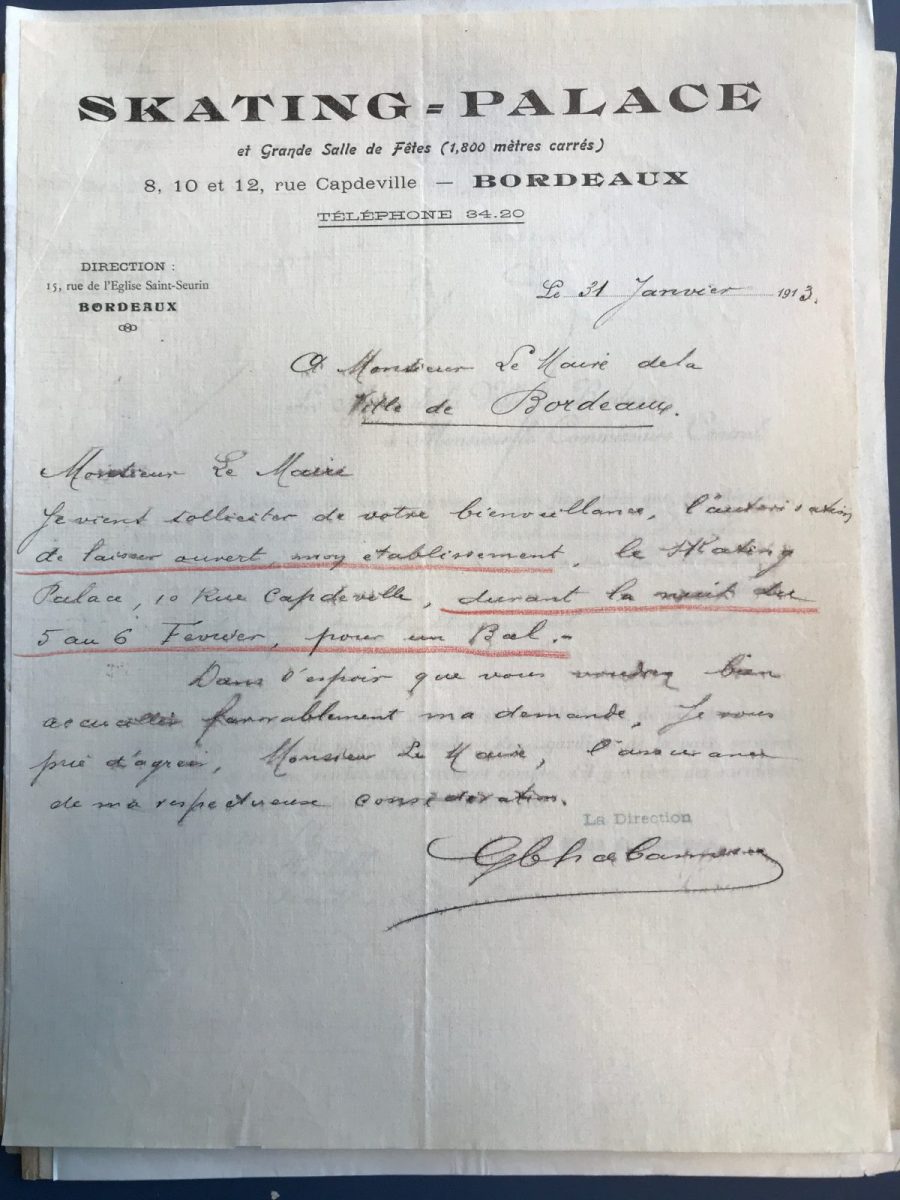 SKATING=PALACE
et Grande Salle de Fêtes (1,800 mètres carrés)
8, 10 et 12, rue Capdeville — BORDEAUX
TÉLÉPHONE 34.20
DIRECTION :
15, rue de l'Eglise Saint-Seurin
BORDEAUX
Le 31 Janvier 1913.
A Monsieur Le Maire de la
Ville de Bordeaux.
Monsieur Le Maire
Je vient solliciter de votre bienveillance, l'autorisation
de laisser ouvert, mon etablissement, le Skating
Palace, 10 Rue Capdeville, durant la nuit du
5 au 6 Fevrier, pour un Bal.-
Dans l'espoir que vous voudrez bien
accueillir favorablement ma demande, Je vous
prie d'agréer, Monsieur Le Maire, l'assurance
de ma respectueuse consideration.
La Direction